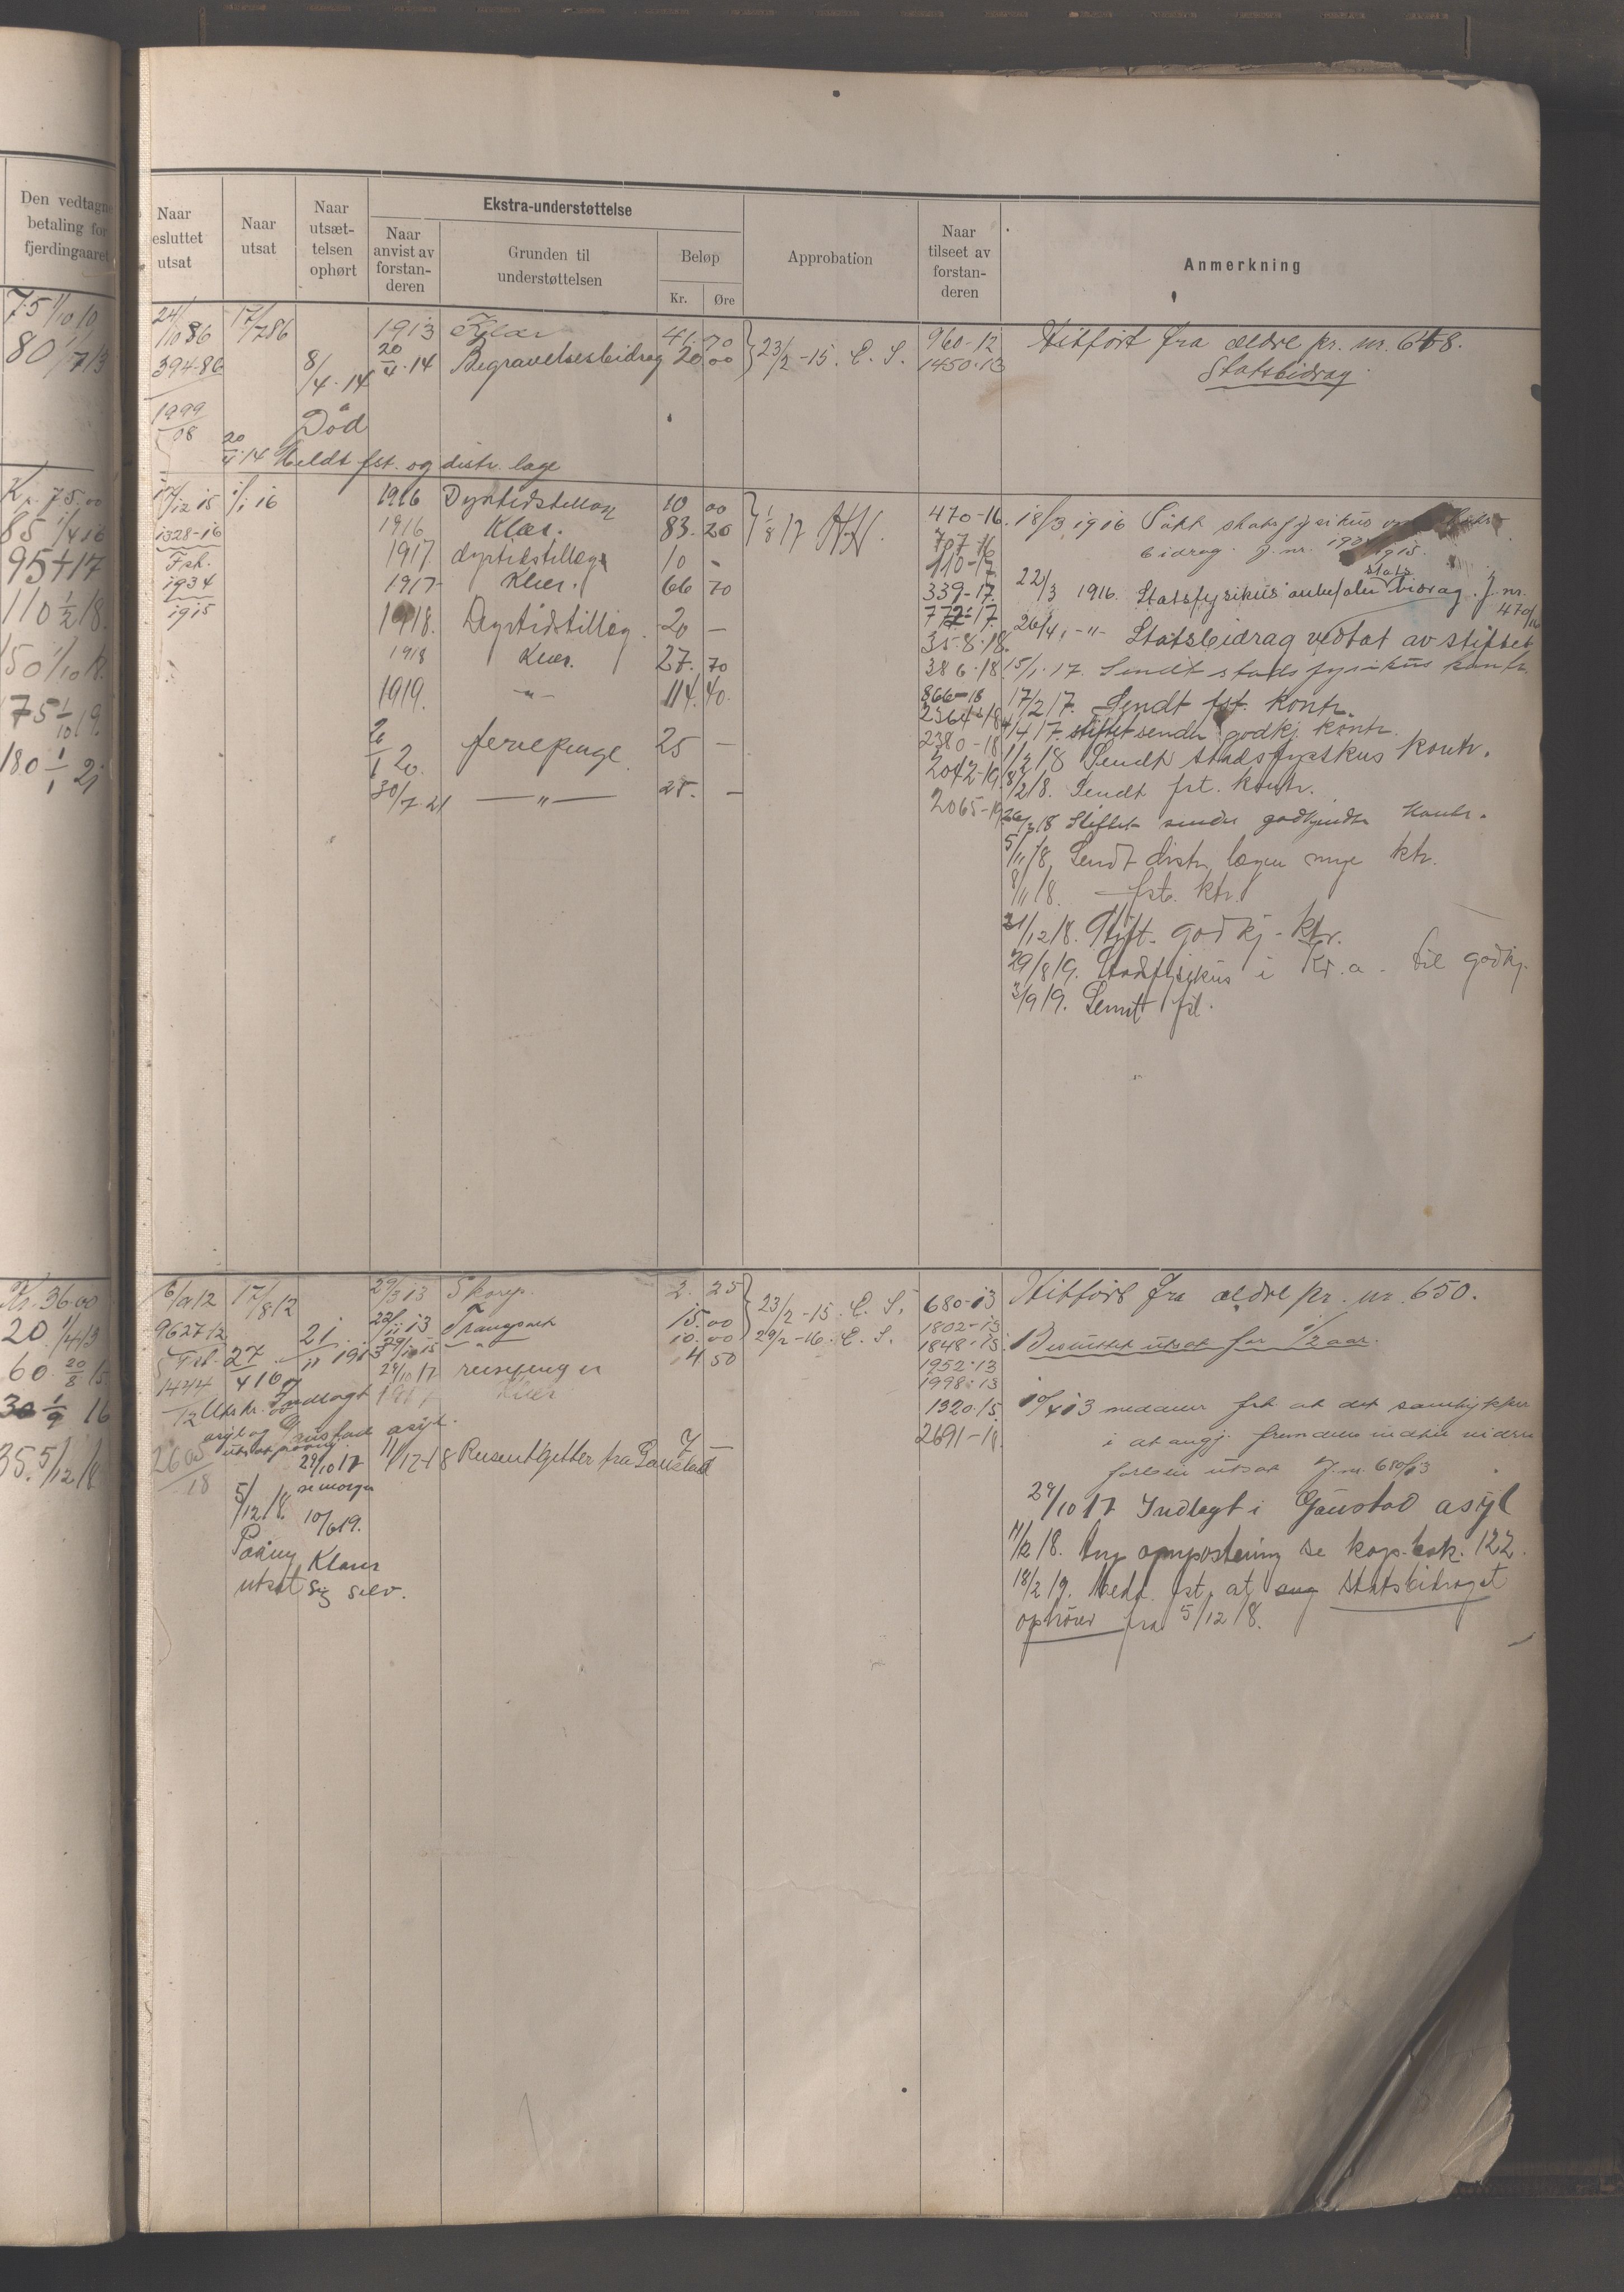 Den vedtagne
betaling for
fjerdingaaret
75 1/10 10
80 1/7 13
Kr. 75.00
85 1/4 16
95 17
110 1/2 18.
150 1/10 18.
175 1/10 19.
180 1/1 21
Kr. 36.00
20. 1/4 13
60. 20/8 15
30 1/9 16
35. 5/12 18
Naar
esluttet
utsat
Naar
utsat
Naar
utsæt-
telsen
ophørt
Ekstra-understøttelse
Naar
anvist av
forstan-
deren
Grunden til
understøttelsen
Beløp
Kr.
Øre
Approbation
Naar
tilseet av
forstan-
deren
Anmerkning
24/10 86
394.86
1999/08
17/7 86
8/4.14
Død
20/4.14 Meldt fst. og distr. læge
1913 Klær 41.70
20/4.14 Begravelsesbidrag 20.00
23/2-15. E. S.
960-12
1450.13
Hitført fra ældre pr. nr. 648.
Statsbidrag
17/12 15
1328-16
Frh.
1934
1915
1/1 16
1916 Dyrtidstillæg 10 00
1916 Klær. 83. 20
1917. dyrtidstillæg 10 -
1917 Klær. 66 70
1918. Dyrtidstillæg. 20 -
1918 Klær. 27. 70
1919. -"- 114. 40.
2/1 20. feriepenge. 25 -
30/7.21 -"- 25. -
1/8 17
470-16.
707-16
110-17
339-17.
772-17.
358.18.
386.18
866-18
2364-18
2380-18
2042-19
2065-19
18/3 1916 Paakl. stadsfysikus
bidrag. J. nr. 1915.
22/3 1916. Stadsfysikus anbefaler stats bidrag. J. nr. 470/16
26/4, -"- Statsbidrag vedtat av stiftet
15/1.17. Sendt stadsfysikus kontr.
17/2 17. Sendt fst. kontr.
4/4 17. stiftet sender godkj. kontr.
1/2 18 Sendt stadsfysikus kontr.
8/2 18. Sendt fst. kontr.
26/2 18 Stiftet sender godkjendt kontr.
5/11 18, Sendt distr. lægen nye ktr.
8/11 18. - fst. ktr.
21/12 18. Stift. godkj. ktr.
29/8 19. Stadsfysikus i Kr.a. til godkj.
3/9 19. Sendt fst.
6/9 12
962712
Frh.
1424/12
2605/18
17/8 12
27/4 16
21/11 1913
Utskr. Indlagt
asyl og Gaustad asyl.
29/10 17
5/12 18.
10/6 19.
Paany Klarer
utsat sig selv.
29/3 13 Skorep. 2. 25
22/11 13 Transport 15.00
29/10 15 -"- 10.00
29/10 17 reisepenger 4 50
1917 Klær
11/12-18 Reiseutgifter fra Gaustad 7 -
23/2-15. E. S.
29/2-16. E. S.
680-13
1802-13
1848.13
1952.13
1998.13
1320.15
2691-18
Hitført fra ældre pr. nr. 650.
Besluttet utsat for 1/2 aar.
10/4 13 meddeler fst. at det samtykker
i at angj. fremdeles indtil videre
forblir utsat J. nr. 680/13
29/10 17 Indlagt i Gaustad asyl
11/2 18. Ang. ompostering se kop.bok. 122.
18/2 19. Medd. fst. at Statsbidraget
ophører fra 5/12 18.